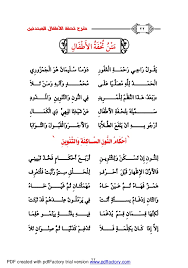 شرح تحفة الأطفال للمبتدئين
متن تحفة الأطفال
يقول راجي رحمة الغفور دوما سليمان هو الجمزوري
الحمد لله مصليا على محمد وآله ومن تلا
وبعد هذا النظم للمريد في النون والتنوين والمدود
سميته بتحفة الأطفال عن شيخنا الميهي ذي الكمال
أرجو به أن ينفع الطلابا والأجر والقبول والثوابا
أحكام النون الساكنة والتنوين
للنون إن تسكن وللتنوين أربع أحكام فخذ تبييني
فالأول الإظهار قبل أحرف للحلق ست رتبت فلتعرف
همز فهاء ثم عين حاء مهملتان ثم غين خاء
والثان إدغام بستة أتت في يرملون عندهم قد ثبتت
لكنها قسمان قسم يدغما فيه بغنة بينمو علما
إلا إذا كانا بكلمة فلا تدغم كدنيا ثم صنوان تلا
PDF created with pdfFactory trial version www.pdffactory.com